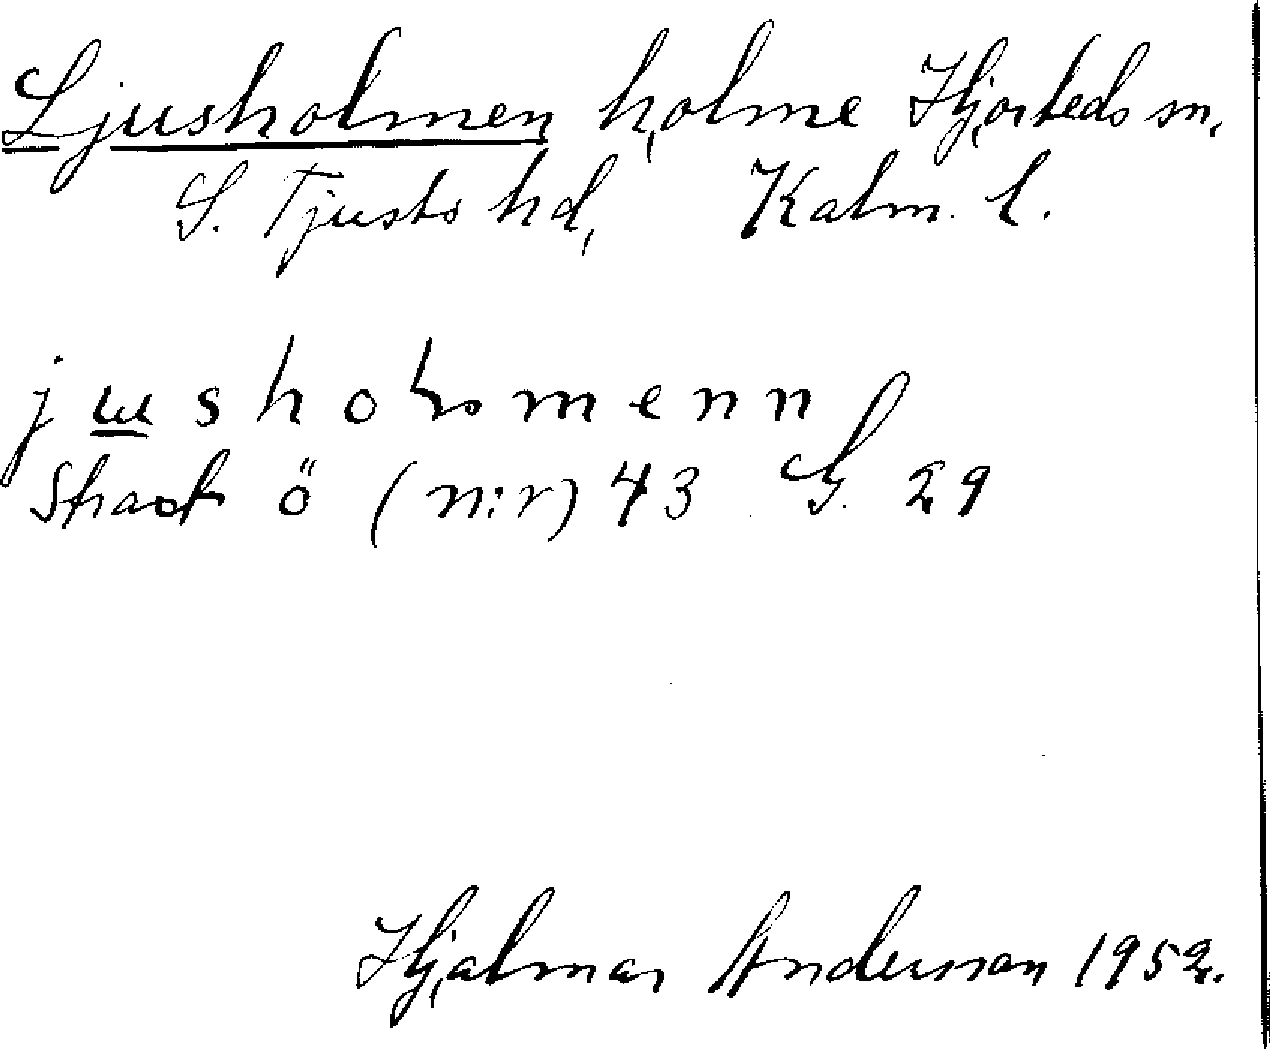 Ljusholmen holme Hjorteds sn,
S. Tjusts hd, Kalm. l.
jusholmenn
ö (n:r) 43 G. 29
Hjalmar Andersson 1952.